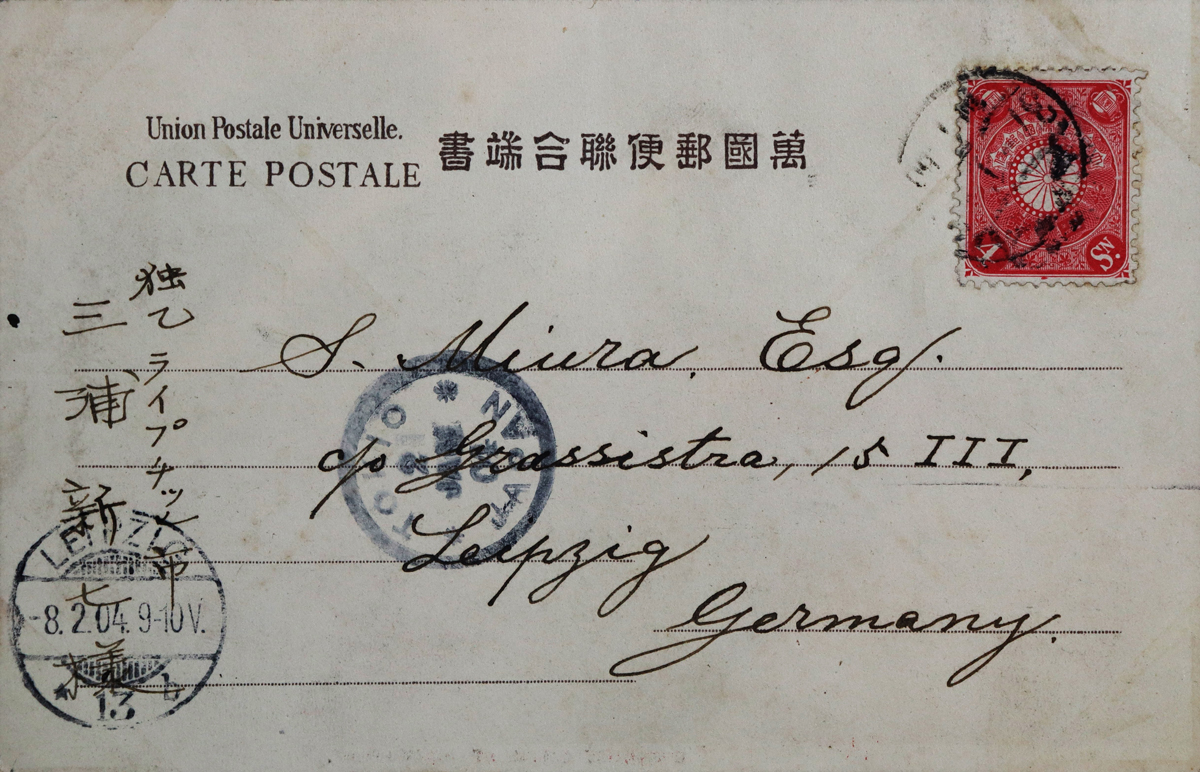 Union Postale Universelle.
CARTE POSTALE
萬國郵便聯合端書
4 Sn.
S. Miura, Esq.
c/o Grassistra, 15 III,
Leipzig
Germany.
独乙ライプチッヒ市
三浦新七様
TOKIO
JAPAN
LEIPZIG
-8.2.04. 9-10V.
* 13 b